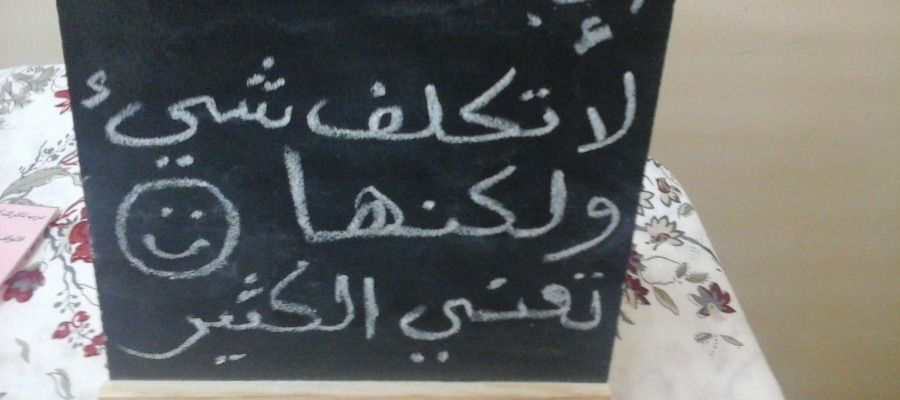 لا تكلف شيئ
ولكنها
تعني الكثير